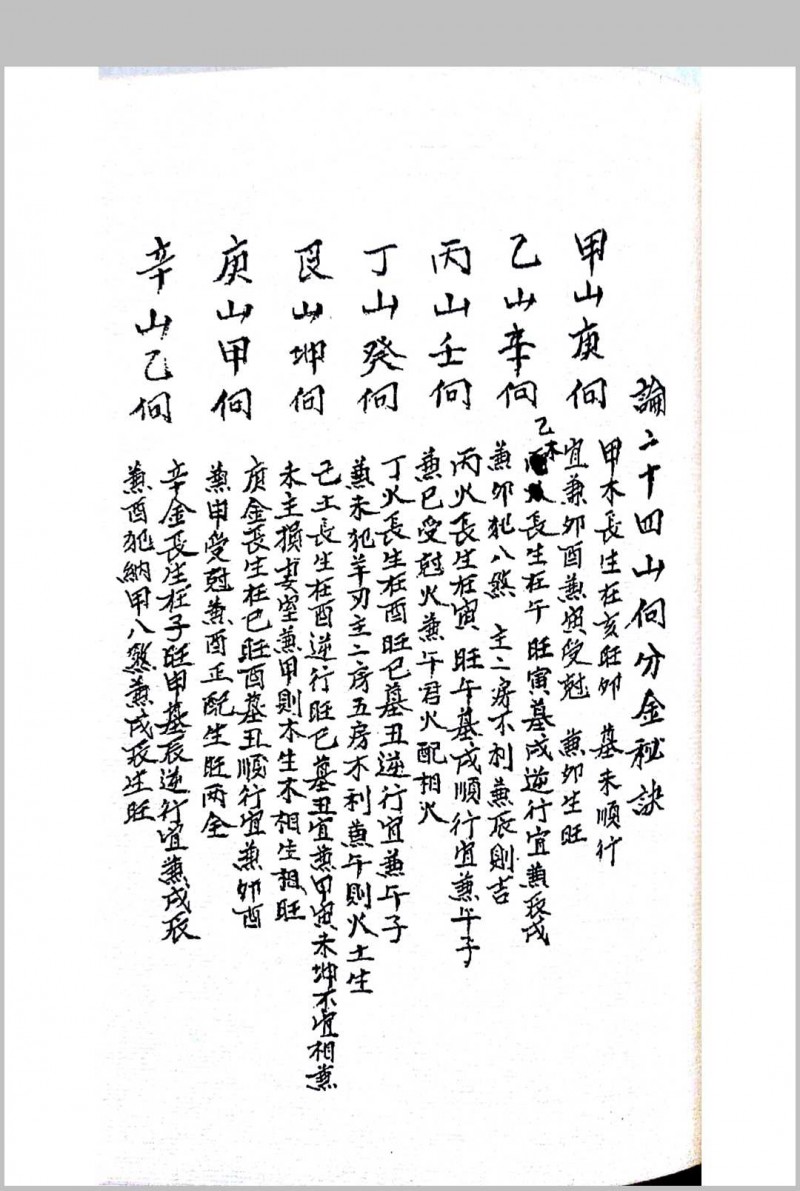 論二十四山向分金秘訣
甲山庚向
甲木長生在亥旺卯 墓未順行
宜兼卯酉兼寅受尅 兼卯生旺
乙山辛向
乙木長生在午 旺寅墓戌逆行宜兼辰戌
兼卯犯八煞 主二房不利兼辰則吉
丙山壬向
丙火長生在寅 旺午墓戌順行宜兼午子
兼巳受尅火兼午君火配相火
丁山癸向
丁火長生在酉旺巳墓丑逆行宜兼午子
兼未犯羊刃主二房五房不利兼午則火土生
艮山坤向
己土長生在酉逆行旺巳墓丑宜兼甲寅未坤不宜相兼
未主損妻室兼甲則木生木相生相旺
庚山甲向
庚金長生在巳旺酉墓丑順行宜兼卯酉
兼申受尅兼酉正配生旺兩全
辛山乙向
辛金長生在子旺申墓辰逆行宜兼戌辰
兼酉犯納甲八煞兼戌辰生旺